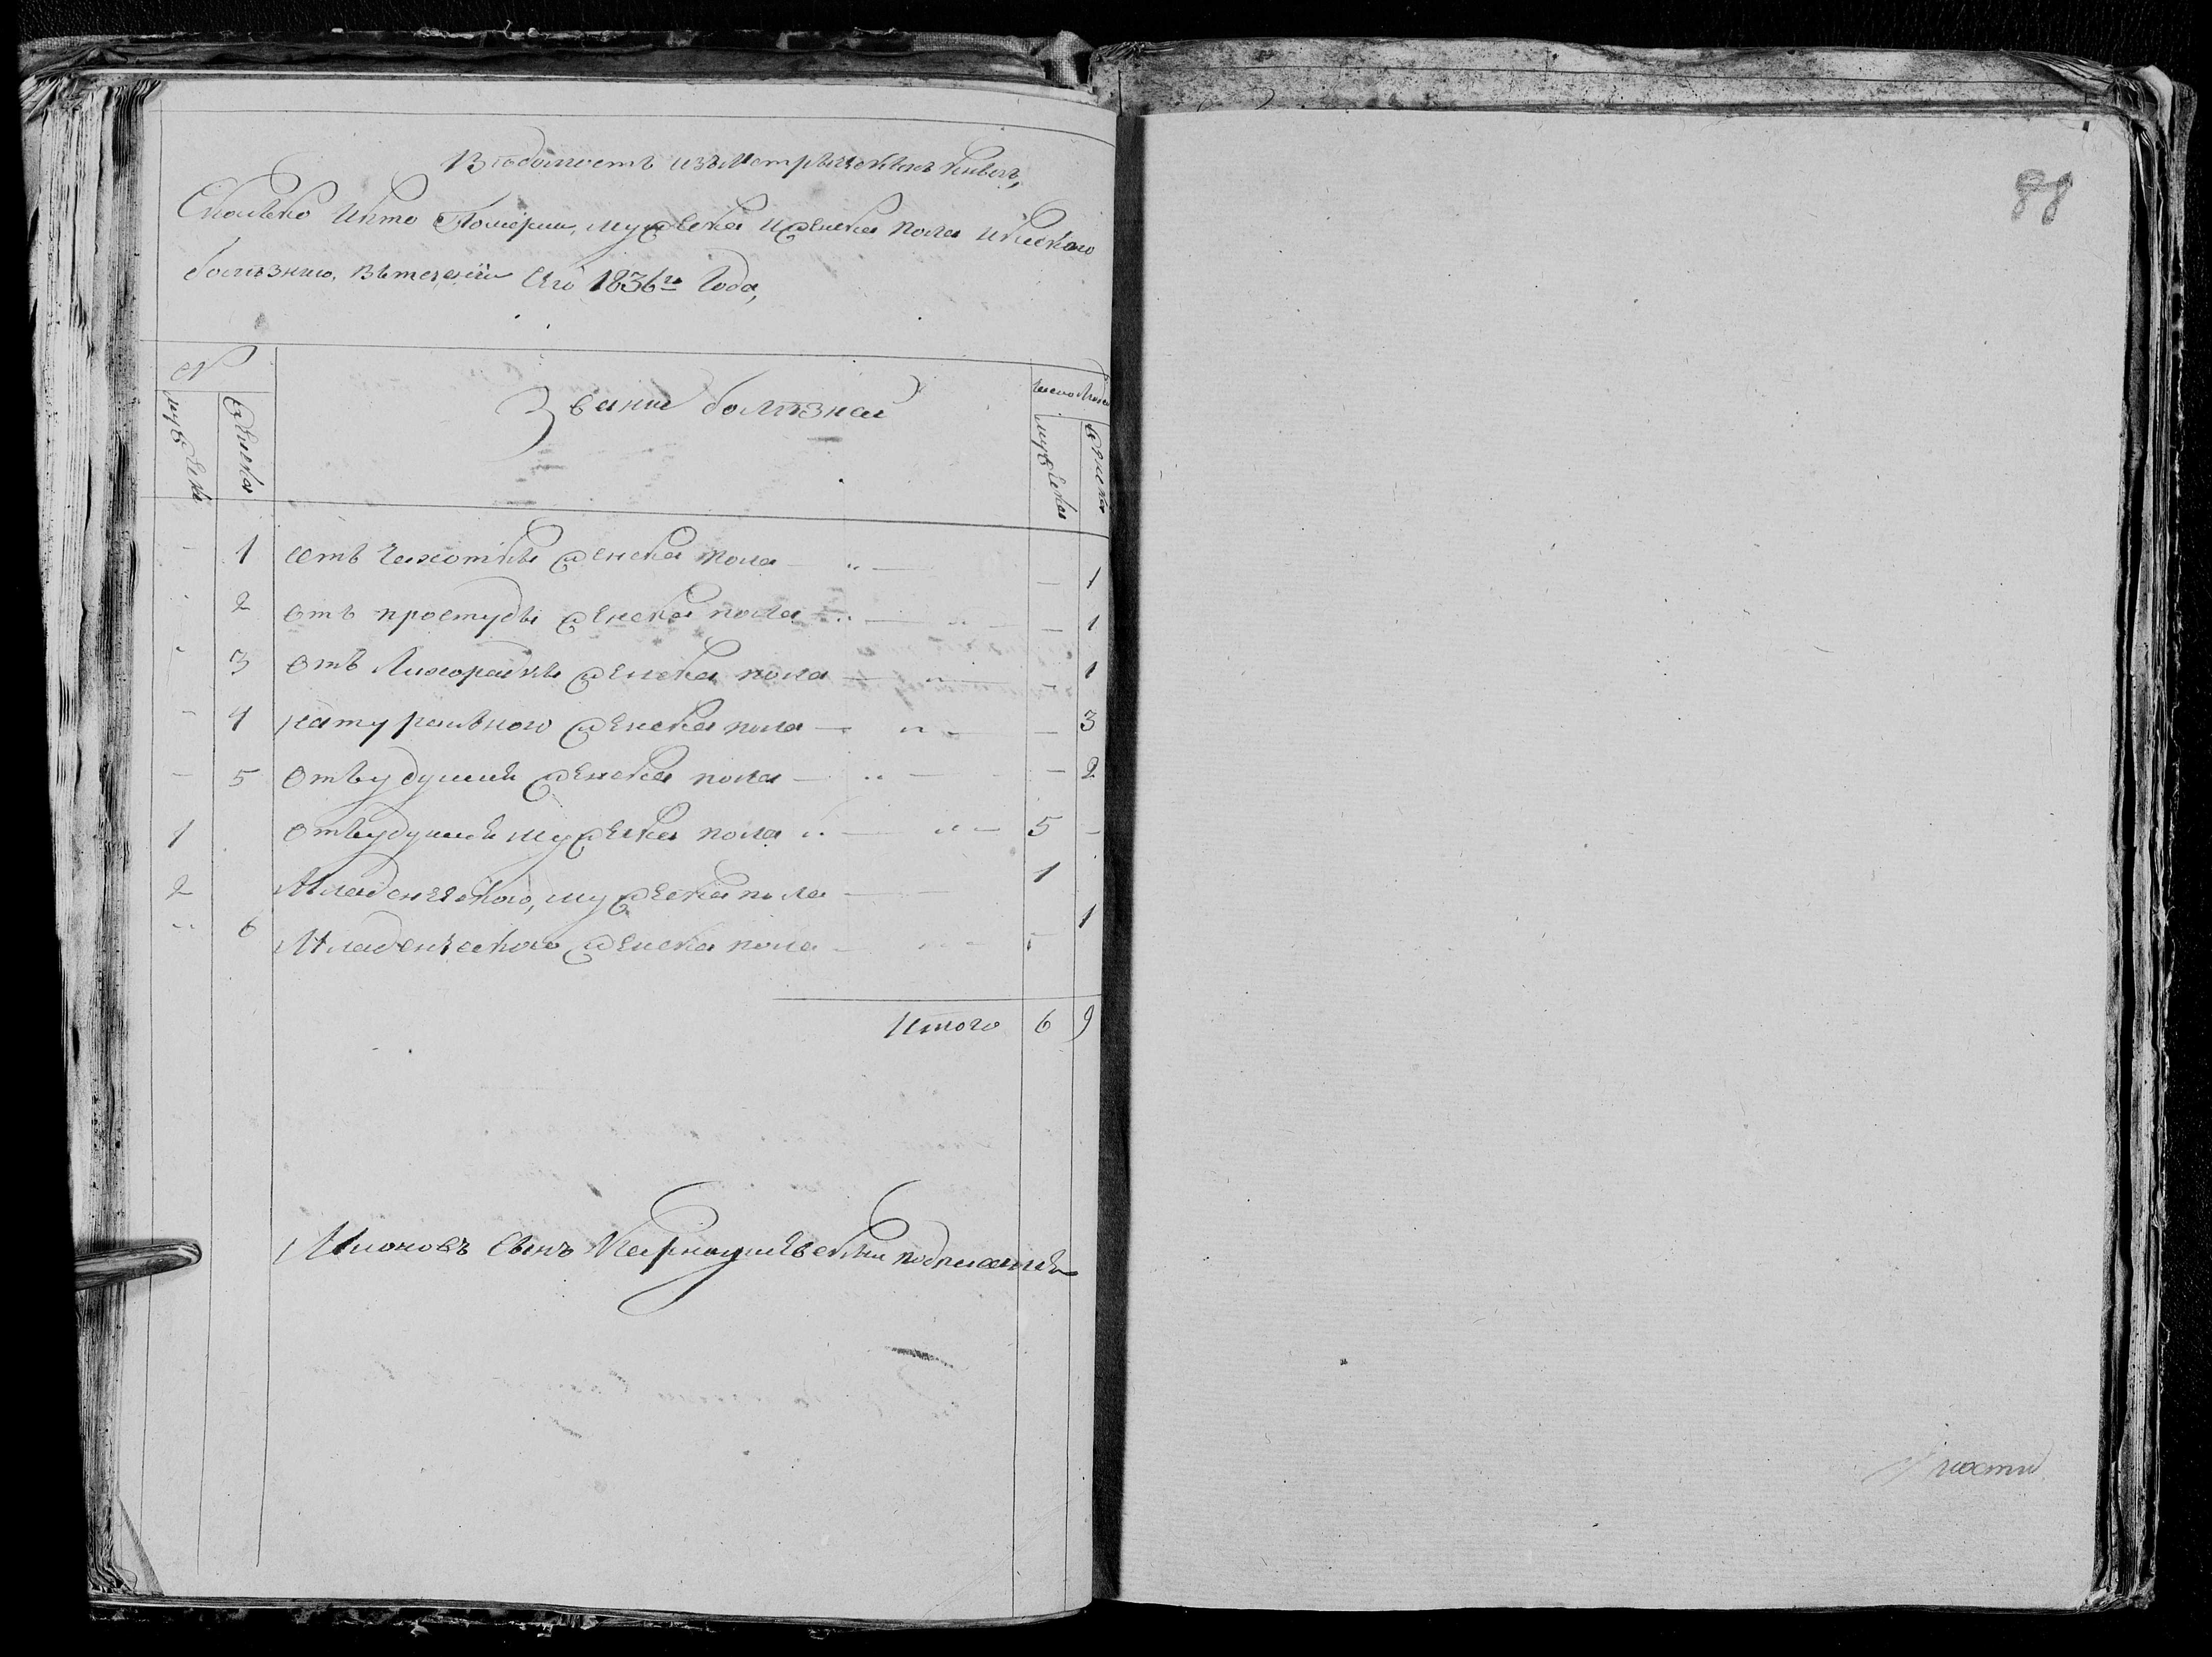 Ведомость изъ Метрическихъ книгъ,
Сколько и кто Померли, мужеска и женска пола и какою
болѣзнию, втечении сего 1836го Года,
№
мужеска
женска
Звание болѣзней
число людей
мужеска
женска
- 1 отъ чихотки женска пола - „ - - 1
- 2 отъ простуды женска пола „ - „ - 1
- 3 отъ Лихорадки женска пола - „ - - 1
- 4 натуральною женска пола - „ - - 3
- 5 отъ удушии женска пола - „ - - 2
1 отъ удушии мужеска пола „ - „ - 5 -
2 Младенческою, мужеска пола - 1
„ 6 Младенческою женска пола - „ - - 1
Итого 6 9
сынъ подписался
88